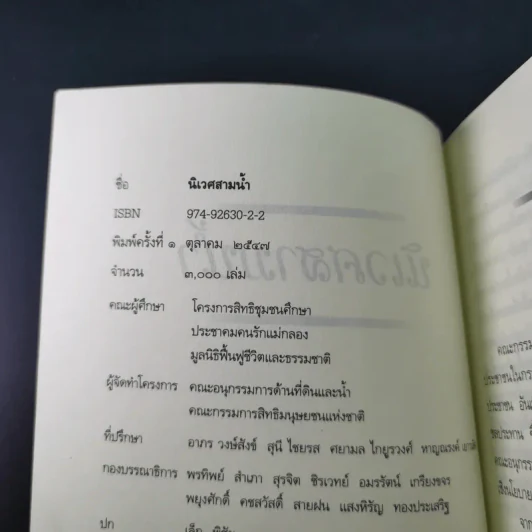 ชื่อ นิเวศสามน้ำ
ISBN 974-92630-2-2
พิมพ์ครั้งที่ ๑ ตุลาคม ๒๕๔๗
จำนวน ๓,๐๐๐ เล่ม
คณะผู้ศึกษา โครงการสิทธิชุมชนศึกษา
ประชาคมคนรักแม่กลอง
มูลนิธิฟื้นฟูชีวิตและธรรมชาติ
ผู้จัดทำโครงการ คณะอนุกรรมการด้านที่ดินและน้ำ
คณะกรรมการสิทธิมนุษยชนแห่งชาติ
ที่ปรึกษา อาภร วงษ์สังข์ สุนี ไชยรส ศยามล ไกยูรวงศ์ หาญณรงค์
กองบรรณาธิการ พรทิพย์ สำเภา สุรจิต ชิรเวทย์ อมรรัตน์ เกรียงขจร
พยุงศักดิ์ คชสวัสดิ์ สายฝน แสงหิรัญ ทองประเสริฐ
ปก
คณะกรรม
ประชาชนในกร
ประชาชน อัน
ชลประทาน
คณะอนุกรรม
เชิงนโยบาย